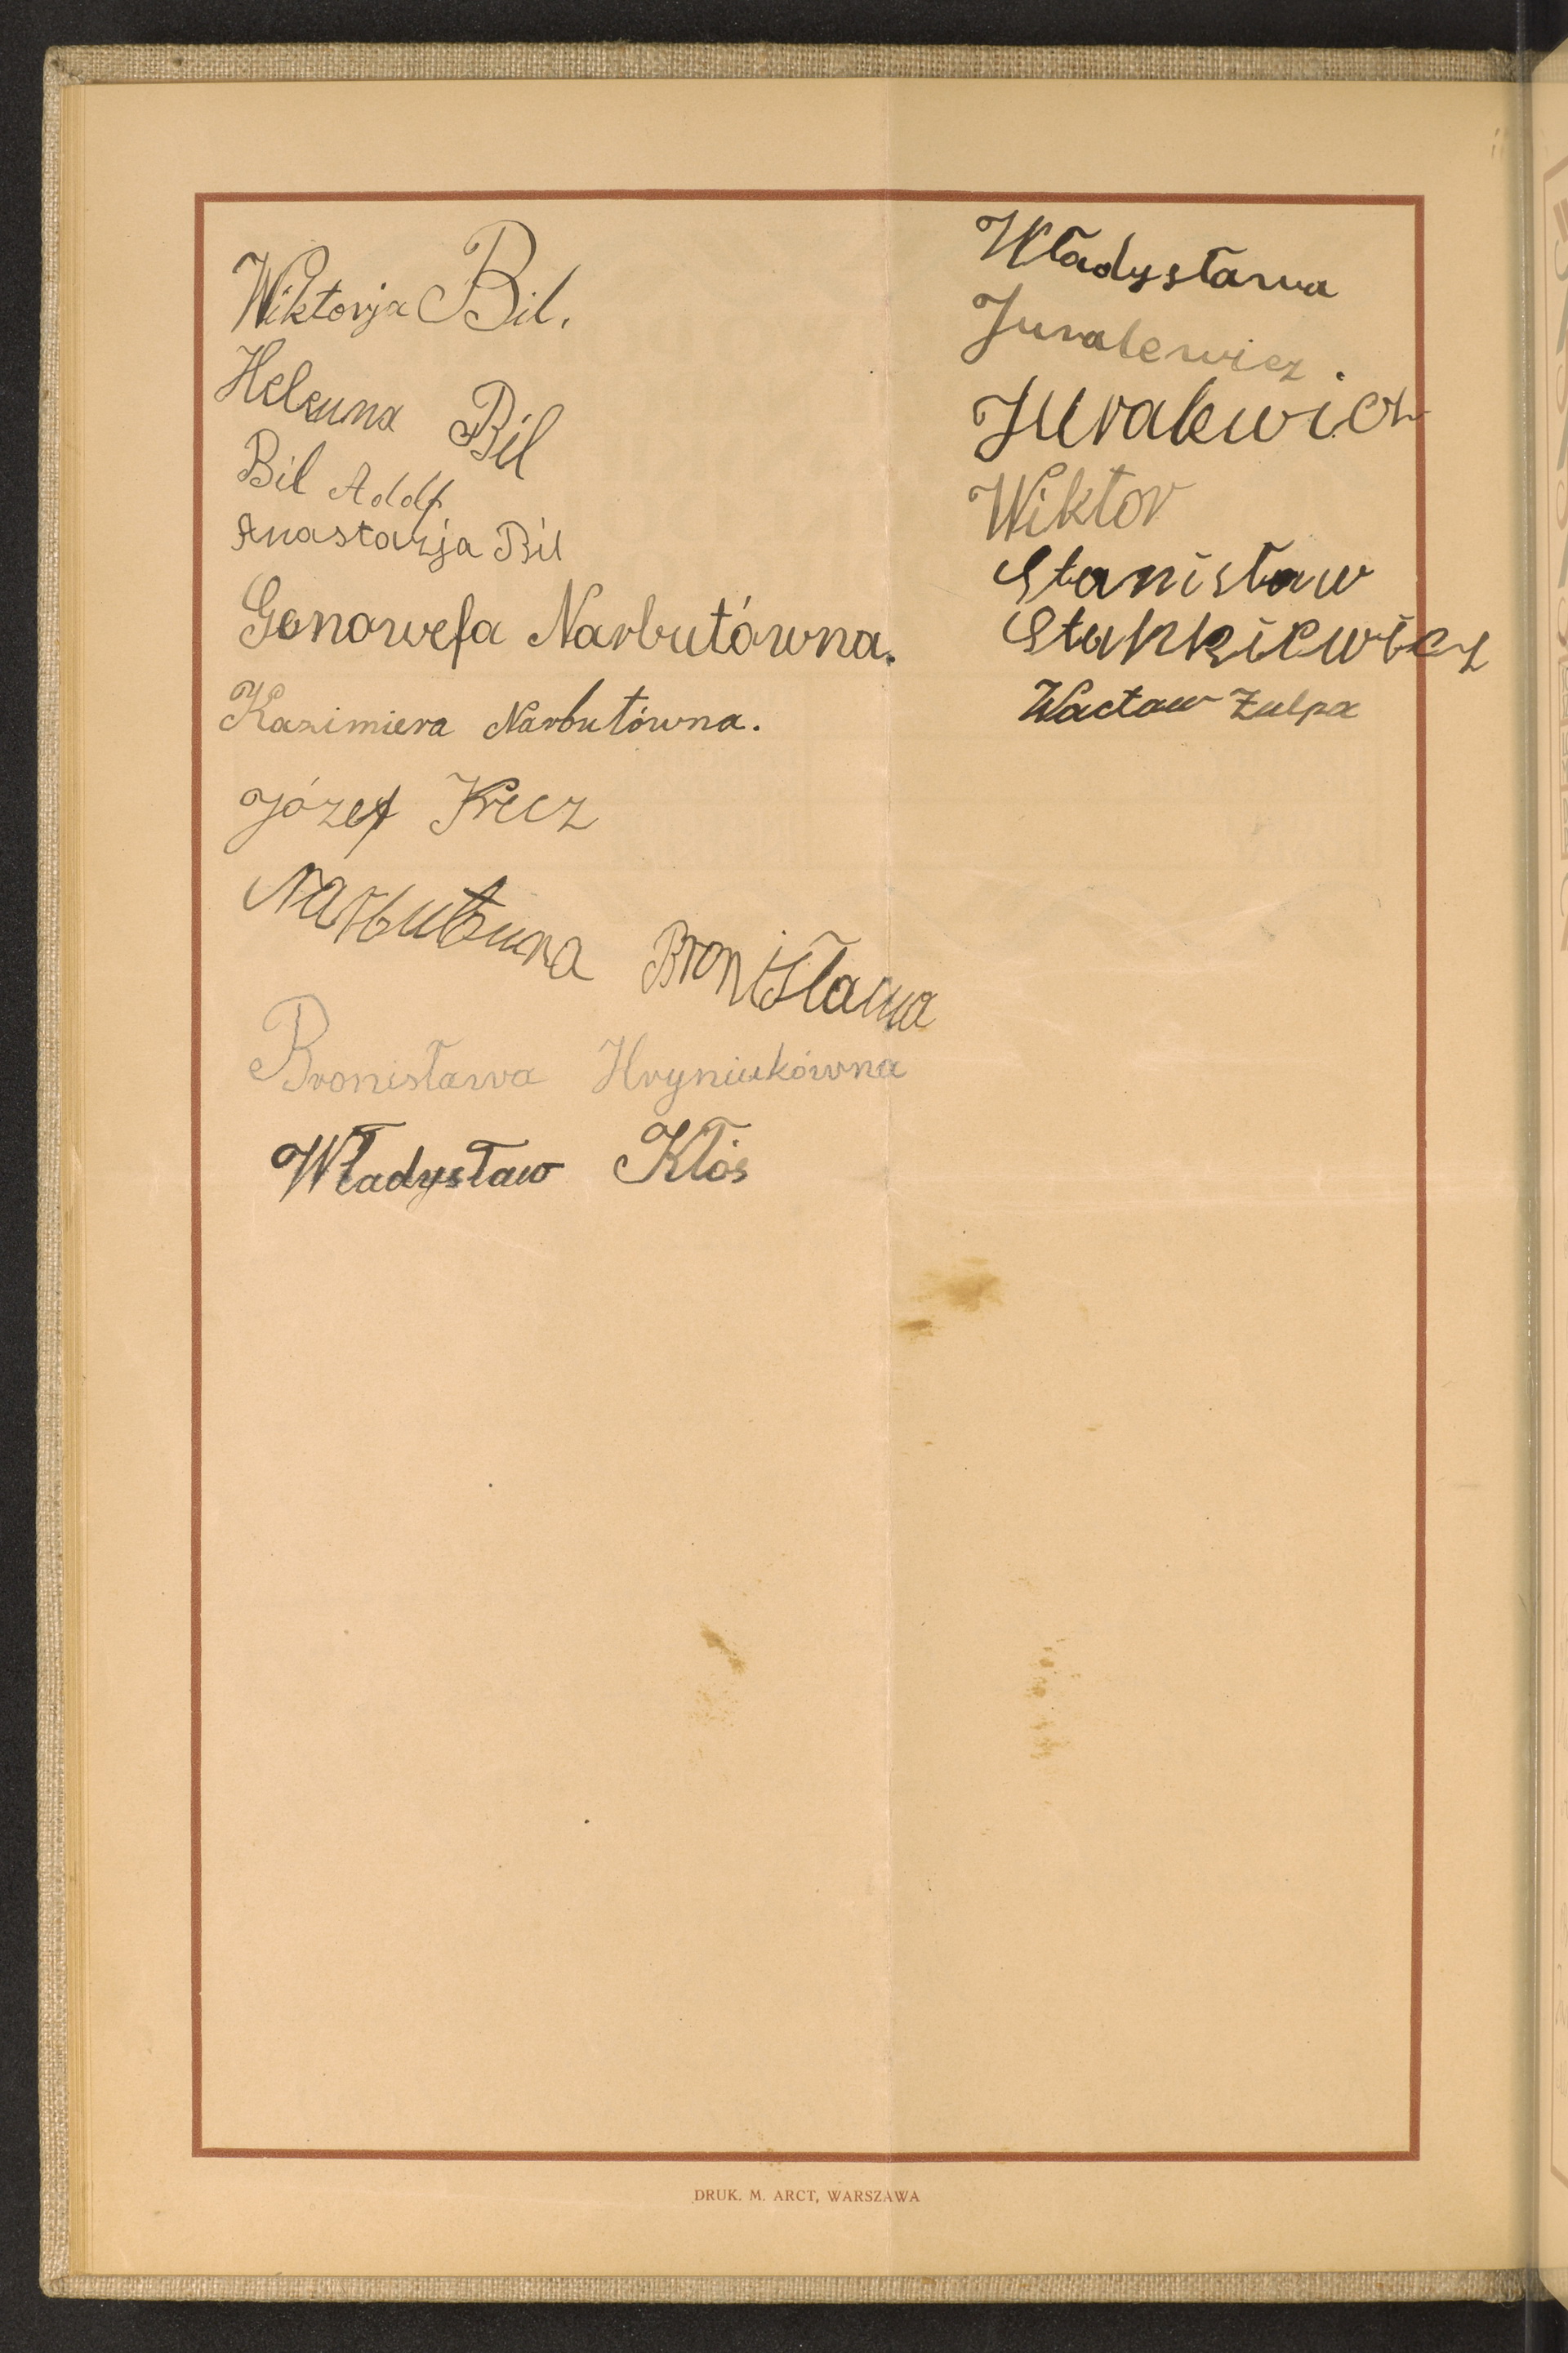 Wiktorja Bil.
Helena Bil
Bil Adolf
Anastazja Bil
Gonowefa Narbutówna.
Kazimiera Narbutówna.
Józef Krecz
Narbutuna Bronisława
Bronisława Hryniukówna
Władysław Kłos
Władysława
Juralewicz.
Juralewicz
Wiktor
Stanisław
Stankiewicz
Wacław Zulpa
DRUK. M. ARCT, WARSZAWA